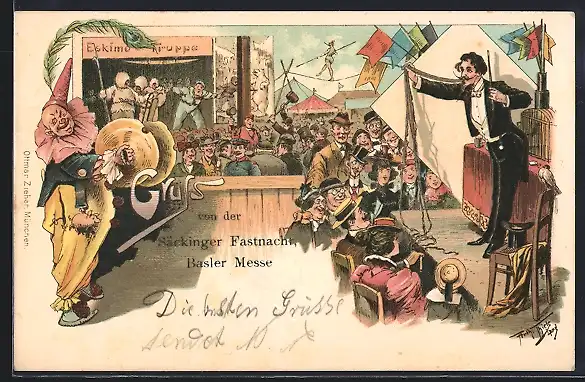 Eskimo Truppe
Gruss
von der
Säckinger Fastnacht
Basler Messe
Die besten Grüsse
sendet
Ottmar Zieher, München.